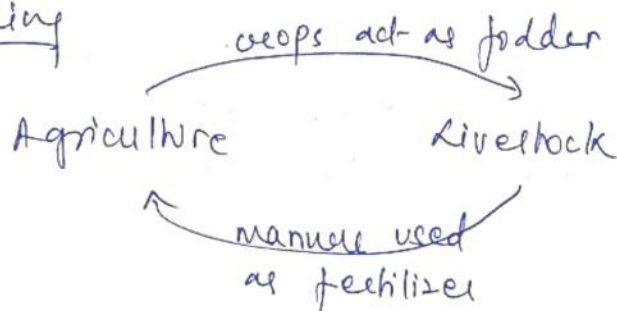 crops act as fodder
Agriculture
Livestock
manure used
as fertilizer